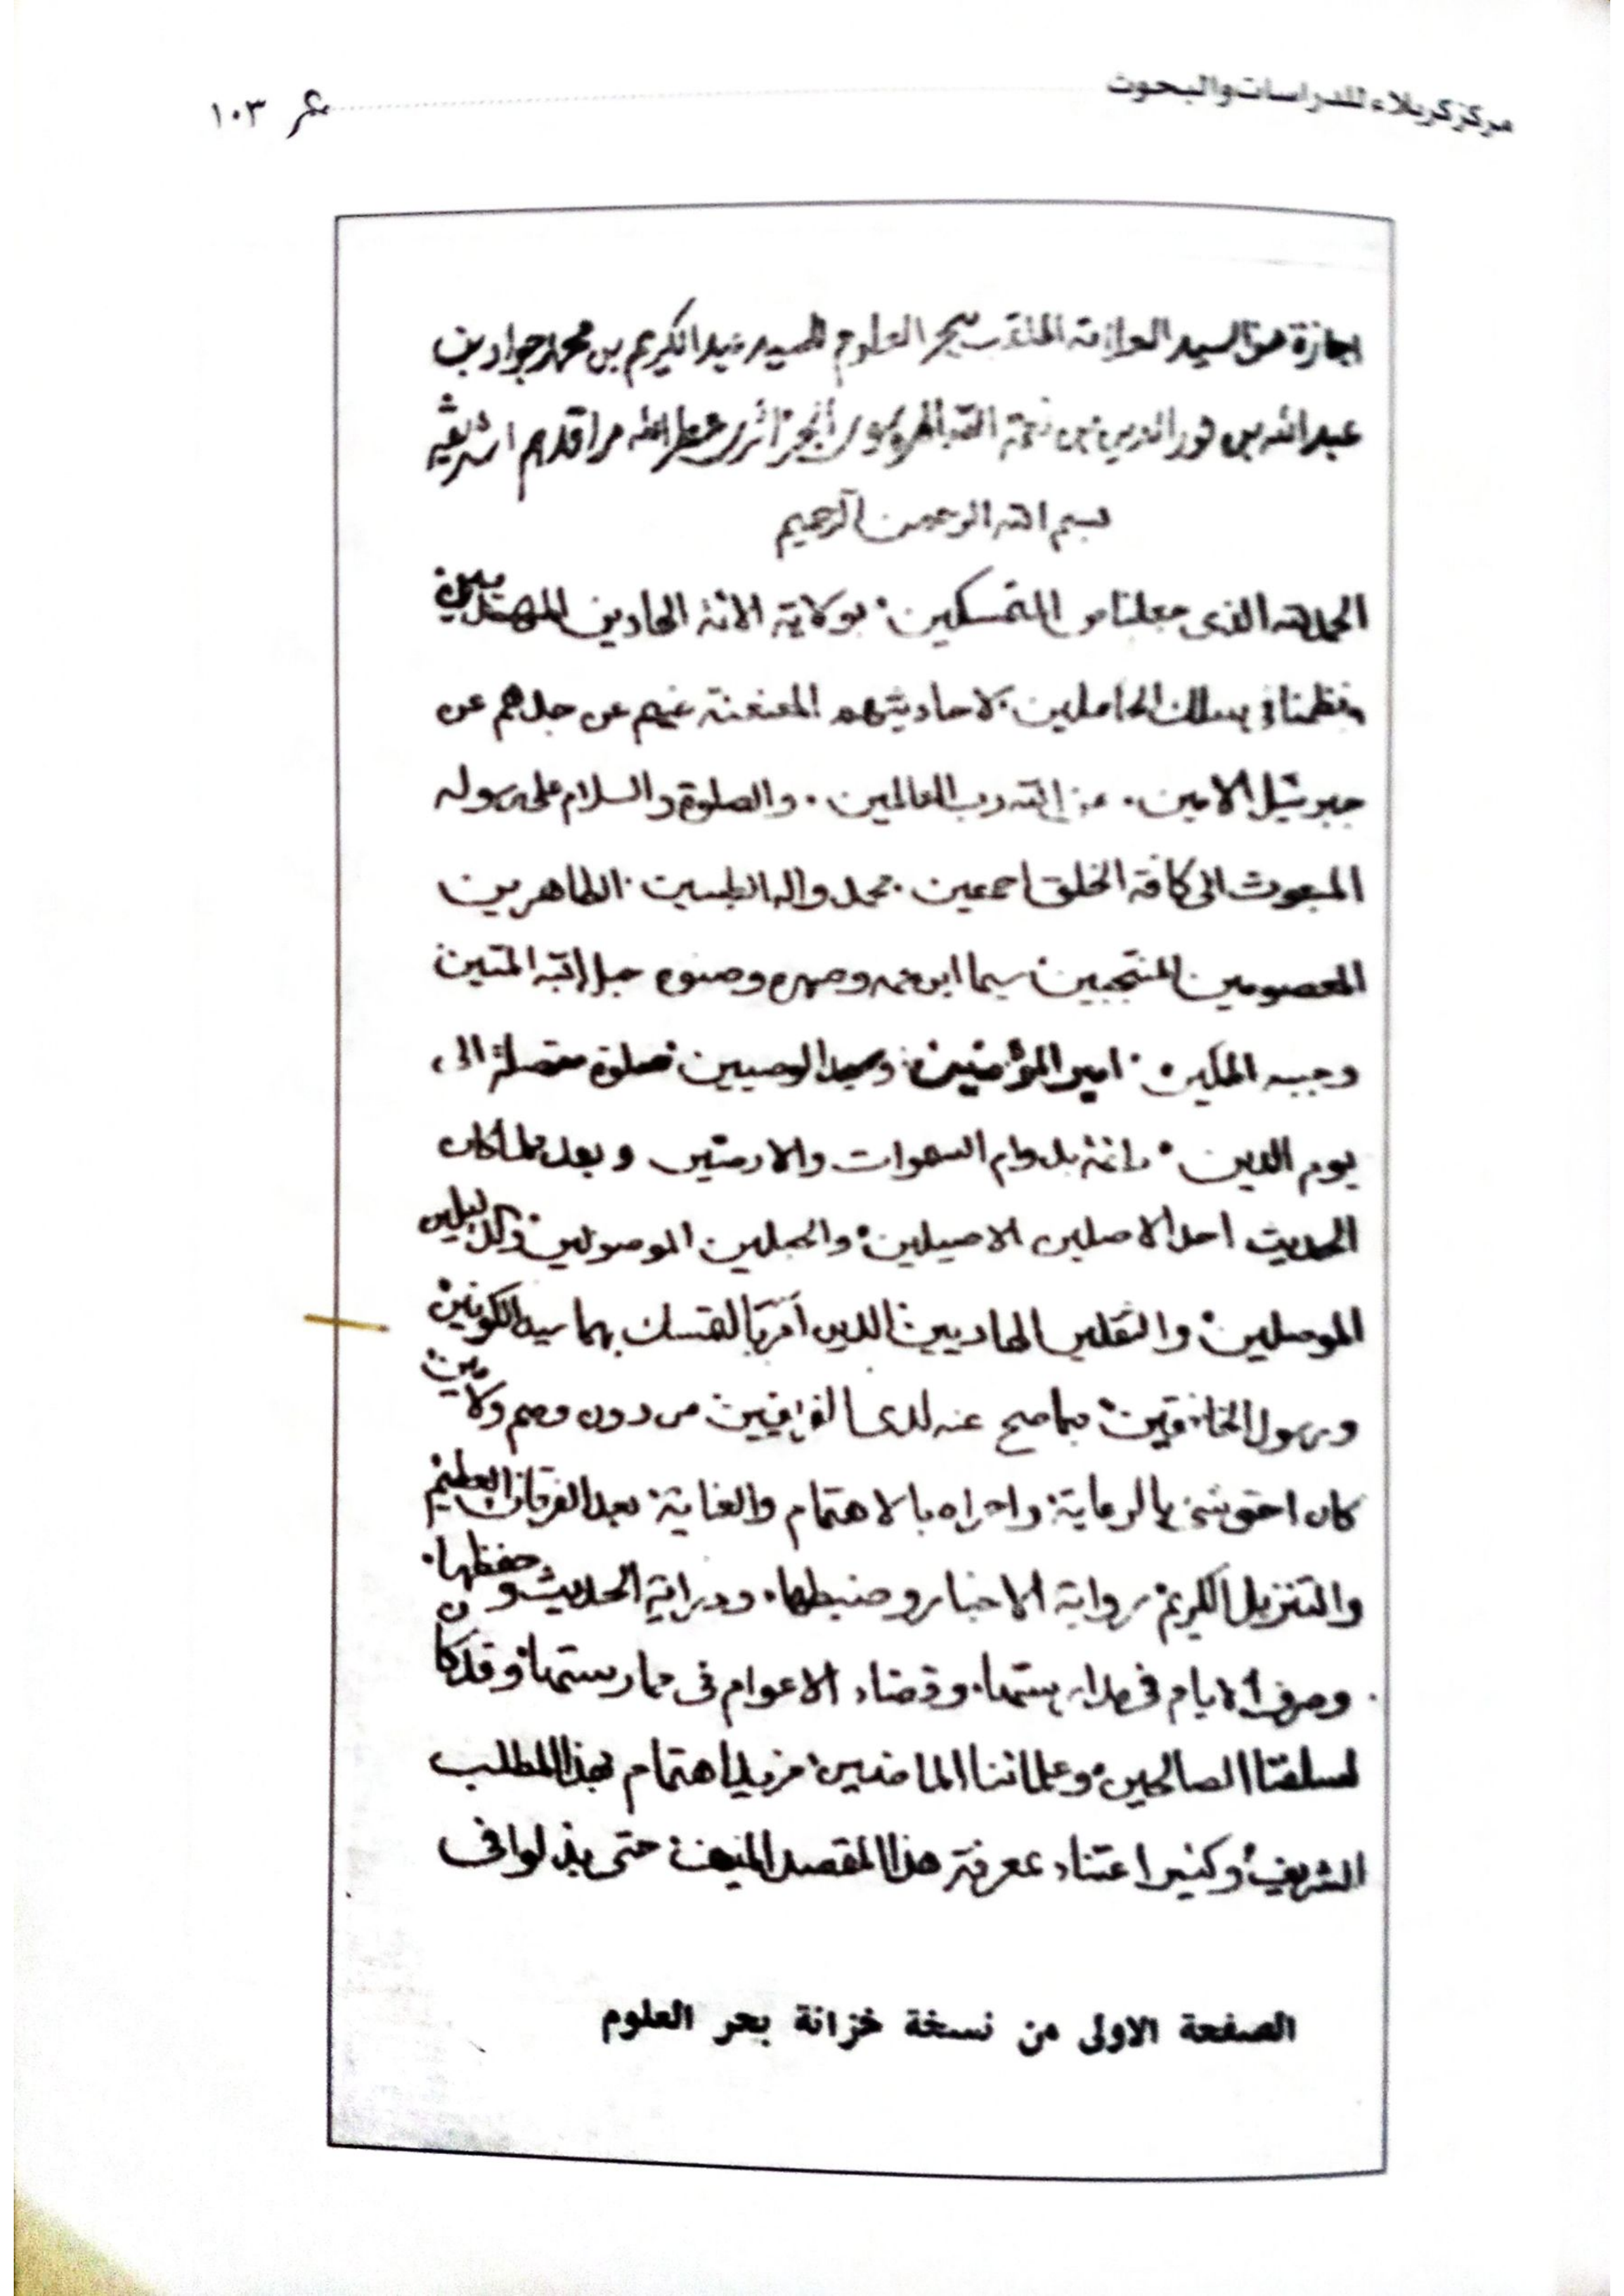 مركز كربلاء للدراسات والبحوث
١٠٣
اجازة من السيد العلامة الملقب ببحر العلوم للسيد عبد الكريم بن محمد جواد بن
عبد الله بن نور الدين بن نعمة الله الموسوى الجزائرى عطر الله مراقدهم الشريفة
بسم الله الرحمن الرحيم
الحمد لله الذى جعلنا من المتمسكين بولاية الائمة الهادين المهتدين
ونظمنا فى سلك الحاملين لاحاديثهم المعنعنة عنهم عن جدهم عن
جبرئيل الامين. عن الله رب العالمين. والصلوة والسلام على رسوله
المبعوث الى كافة الخلق اجمعين. محمد واله الطيبين الطاهرين
المعصومين المنتجبين سيما ابن عمه وصهره وصنوه حبل الله المتين
وجنبه المكين امير المؤمنين وسيد الوصيين صلوة متصلة الى
يوم الدين دائمة بدوام السموات والارضين وبعد فلما كان
الحديث احد الاصلين الاصيلين والحبلين الموصولين والدليلين
الموصلين والثقلين الهاديين الذين امر بالتمسك بهما سيد الكونين
ورسول الخافقين بما صح عنه لدى الفريقين من دون وهم ولا مين
كان احق شئ بالرعاية واحراه بالاهتمام والعناية بعد الفرقان العظيم
والتنزيل الكريم رواية الاخبار وضبطها. ودراية الحديث وحفظها.
وصرف الايام فى مدارستها. وقضاء الاعوام فى ممارستها وقد كان
لسلفنا الصالحين وعلمائنا الماضين مزيد اهتمام بهذا المطلب
الشريف وكثير اعتناء بمعرفة هذا المقصد المنيف حتى بذلوا فى
الصفحة الاولى من نسخة خزانة بحر العلوم